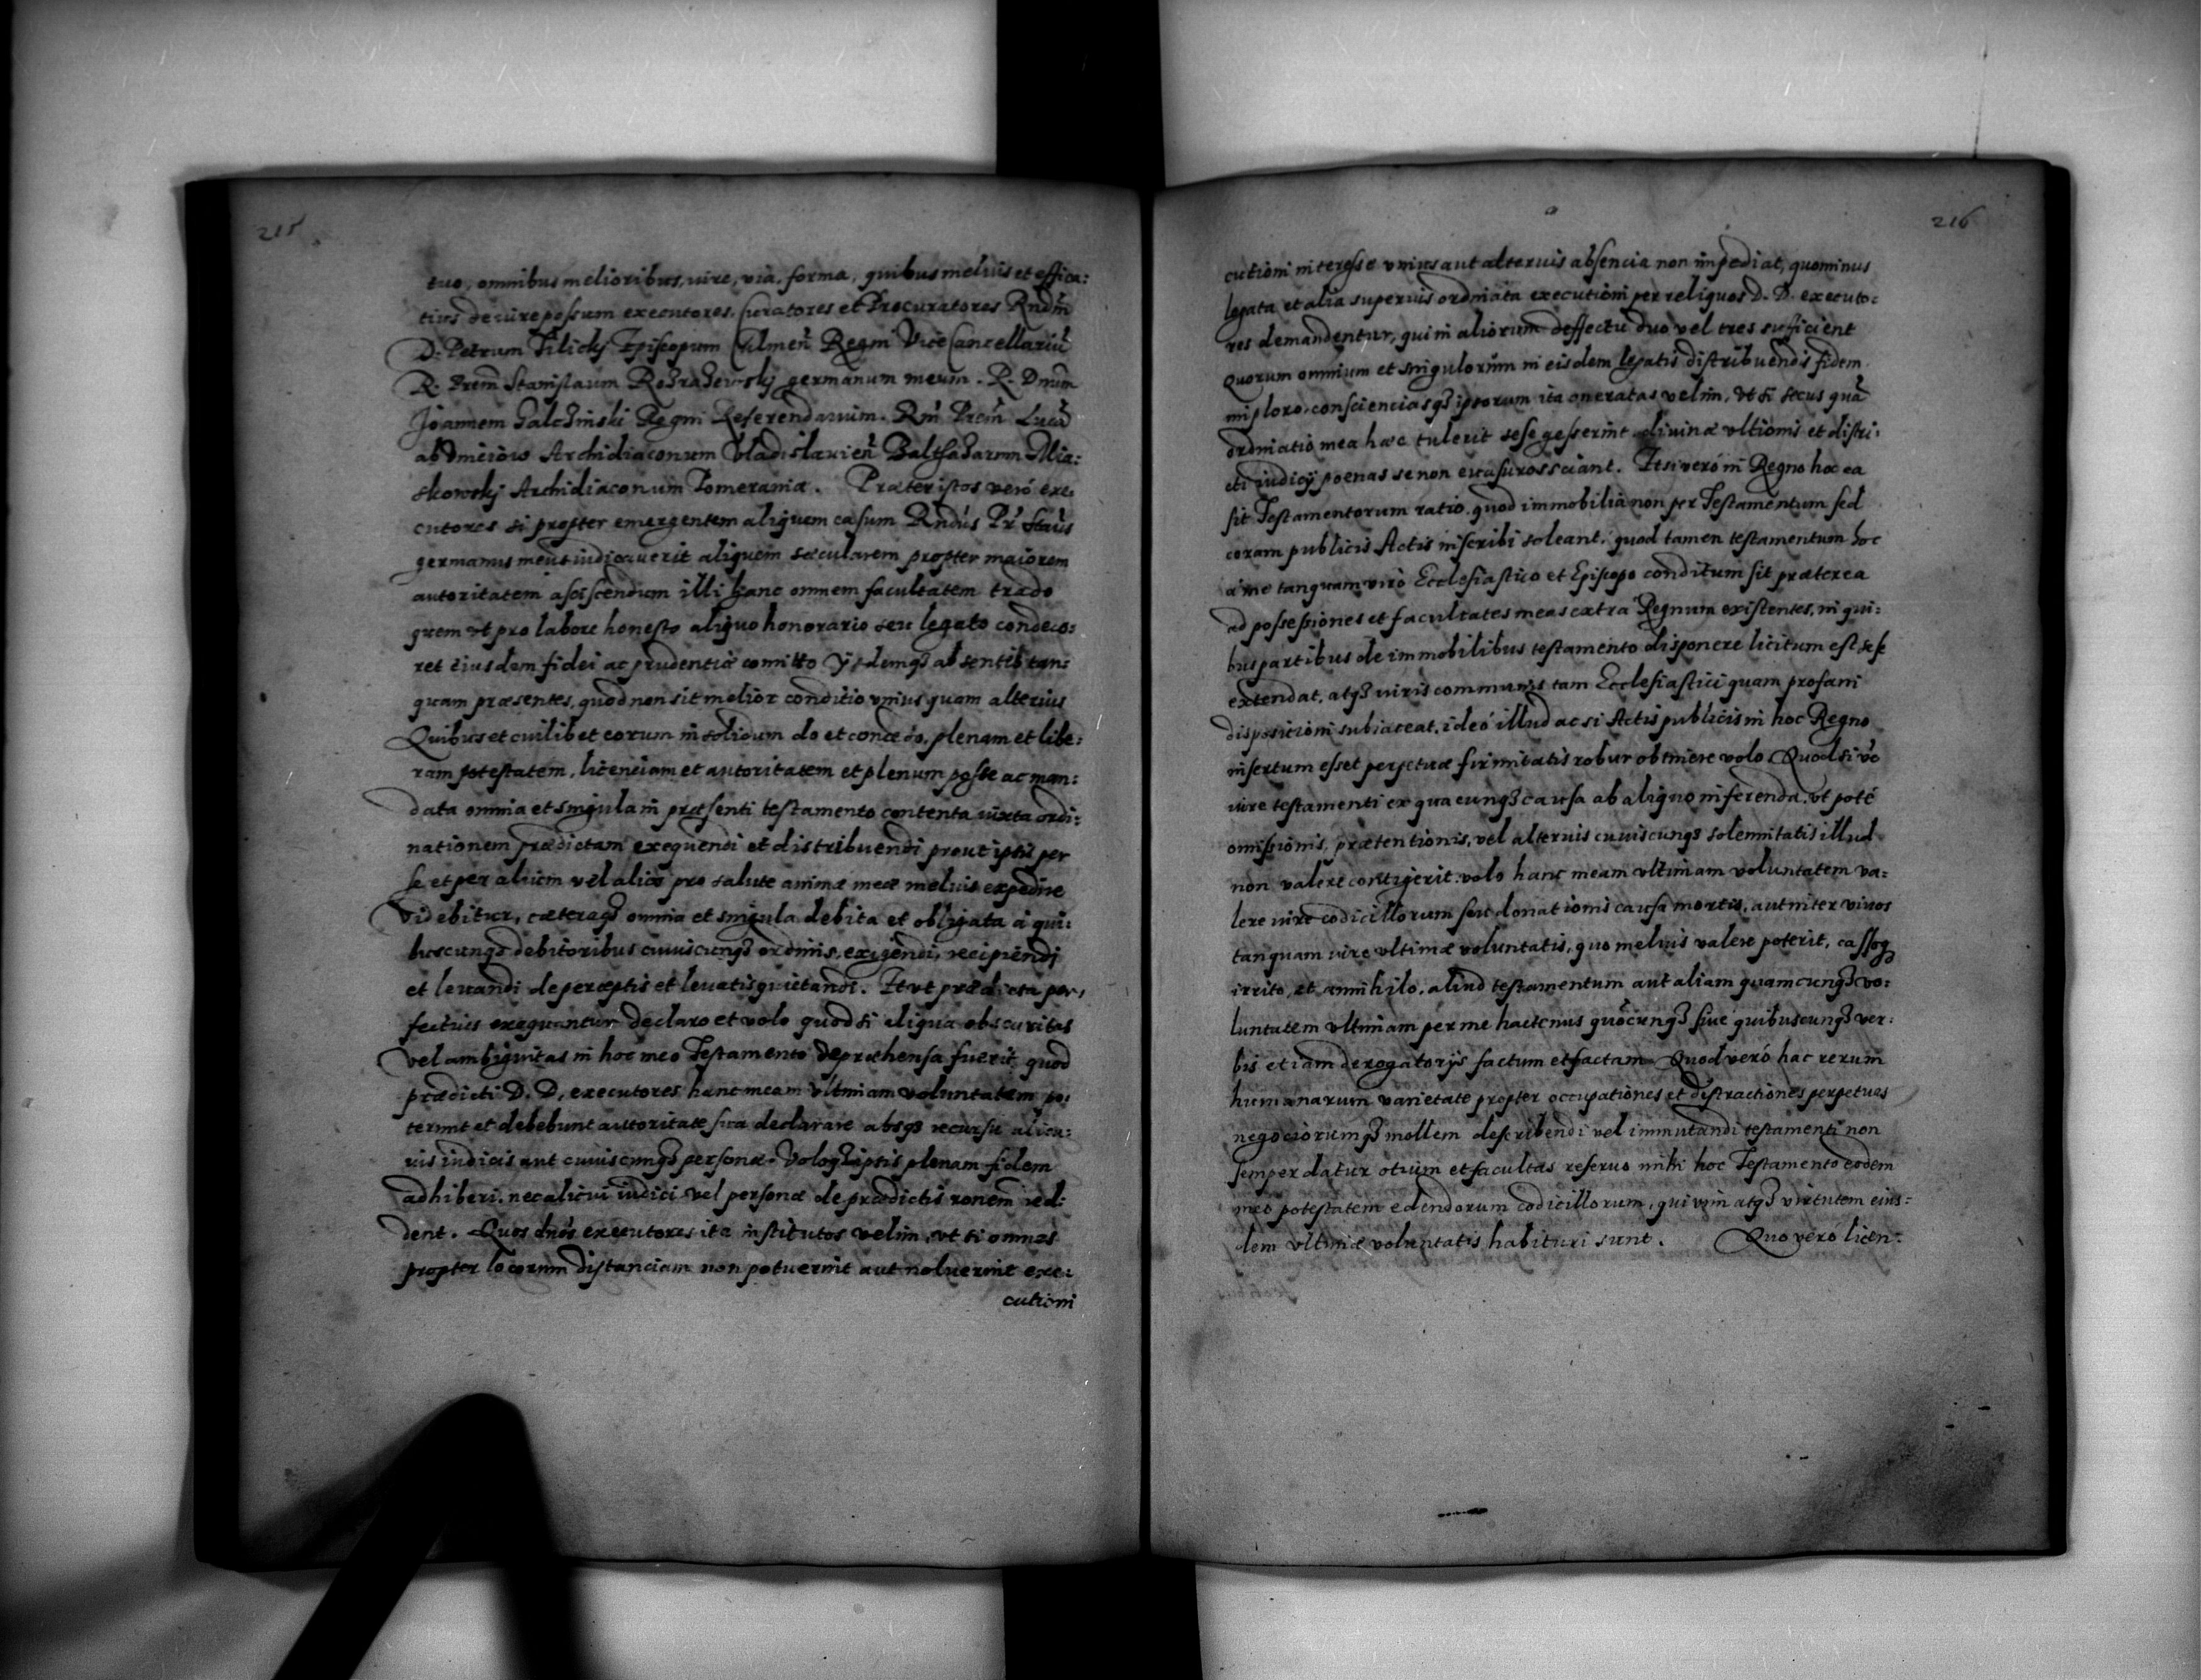 215
tuo, omnibus melioribus, iure, via, forma, quibus melius et effica:
tius de iure possum executores, Curatores et Procuratores Rndm̃
D. Petrum Tilickj Episcopum Culmeñ Regni ViceCancellariũ
R. Prem̃ Stanislaum Rozrazewskj germanum meum. R. Dnum
Joannem Galczinski Regni Referendarium. Rm̃ Prem̃ Lucã
archidiaconum Vladislavieñ Balthazarum Mia:
skowskj Archidiaconum Pomeraniæ. Præter istos veró exe.
cutores si propter emergentem aliquem casum Rndus Pr̃ Staũs
germanus meus iudicaverit aliquem sæcularem propter maiorem
autoritatem asciscendum illi hanc omnem facultatem trado
quem vt pro labore honesto aliquo honorario seu legato condeco:
ret eiusdem fidei ac prudentiæ comitto ijsdemq3 absentib tan:
quam præsentes, quod non sit melior conditio vnius quam alterius
Quibus et cuilibet eorum in solidum do et concedo, plenam et libe:
ram potestatem, licenciam et autoritatem et plenum posse ac man:
data omnia et singula in præsenti testamento contenta iuxta ordi:
nationem prædictam exequendi et distribuendi prout ipsis per
se et per alium vel alios pro salute animæ meæ melius expedire
Videbitur, cæteraq3 omnia et singula debita et obligata á qui:
buscunq3 debitoribus cuiuscunq3 ordinis, exigendi, recipiendi
et levandi de perceptis et levatis quietandi. Et vt prædicta per,
fectius exequantur declaro et volo quod si aliqua obscuritas
vel ambiguitas in hoc meo Testamento depræhensa fuerit quod
prædicti D. D. executores hanc meam vltimam voluntatem po:
terint et debebunt autoritate sua declarare absq3 recursu alicu:
uis iudicis aut cuiuscunq3 personæ. Voloq3 ipsis plenam fidem
adhiberi. nec alicui iudici vel personæ de prædictis ronem red:
dent. Quos dnós executores ita institutos velim, vt si omnes
propter locorum distanciam non potuerint aut noluerint exe:
cutioni
216
cutioni interesse vnius aut alterius absencia non impediat, quominus
legata et alia superius ordinata executioni per reliquos D. D. executo:
res demandentur, qui in aliorum deffectu duo vel tres sufficient
Quorum omnium et singulorum in eisdem legatis distribuendis fidem
imploro, consciencias q3 ipsorum ita oneratas velim, vt si secus quã
ordinatio mea hæc tulerit sese gesserint divinæ vltionis et distri:
cti iudicij poenas se non evasuros sciant. Etsi veró in Regno hoc ea
sit Testamentorum ratio quod immobilia non per Testamentum sed
coram publicis Actis inscribi soleant, quod tamen testamentum hoc
á me tanquam viró Ecclesiastico et Episcopo conditum sit præterea
ad possessiones et facultates meas extra Regnum existentes, in qui:
bus partibus de immobilibus testamento disponere licitum est sese
extendat, atq3 iuris communis tam Ecclesiastici quam profani
dispositioni subiaceat, ideó illud ac si Actis publicis in hoc Regno
insertum esset perpetuæ firmitatis robur obtinere volo Quod si vó
iure testamenti ex quacunq3 causa ab aliquo inferenda. vt poté
omissionis, prætentionis, vel alterius cuiuscunq3 solennitatis illud
non valere contigerit. volo hanc meam vltimam voluntatem va:
lere iure codicillorum seu donationis causa mortis, aut inter vivos
tanquam iure vltimæ voluntatis, quo melius valere poterit, cassoq3
irrito, et annihilo, aliud testamentum aut aliam quamcunq3 vo:
luntatem vltimam per me hactenus quõcunq3 sive quibuscunq3 ver:
bis etiam derogatorijs factum et factam. Quod veró hac rerum
humanarum varietate propter occupationes et distractiones perpetuas
negociorumq3 mollem describendi vel immutandi testamenti non
semper datur otium et facultas reservo mihi hoc Testamento eodem
meo potestatem edendorum codicillorum, qui vim atq3 virtutem eius:
dem vltimæ voluntatis habituri sunt. Quo veró licen: